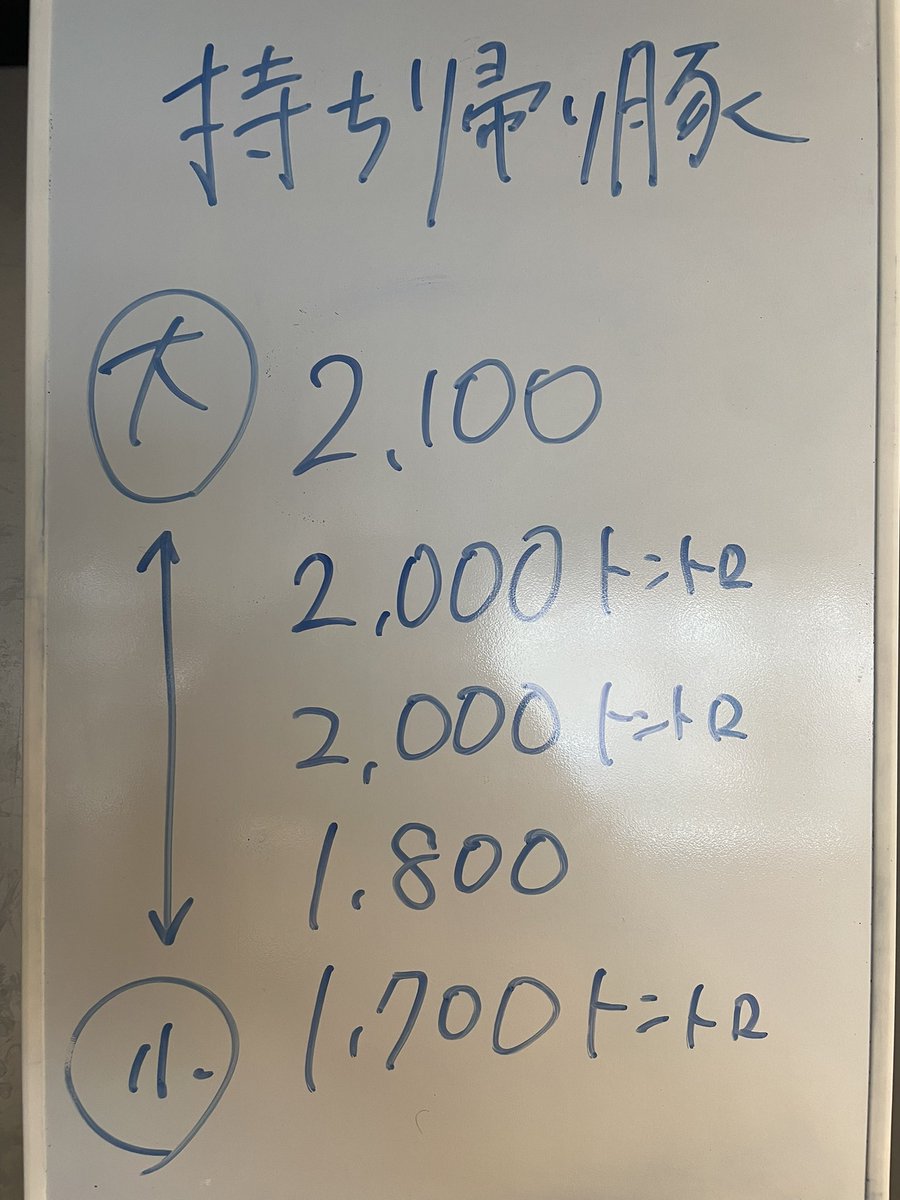 持ち帰り豚
大 2,100
2,000 トントロ
2,000 トントロ
1,800
小 1,700 トントロ